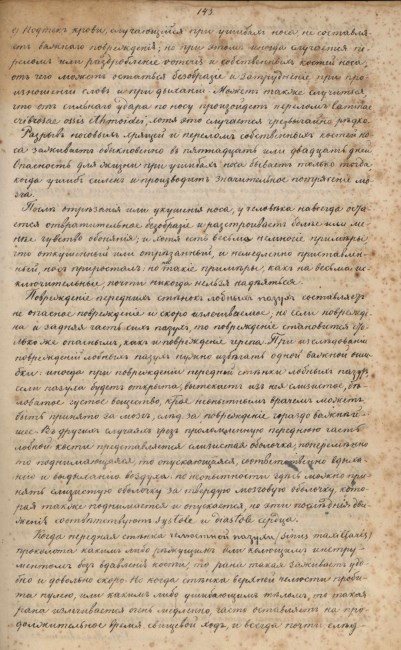 143
с) Подтек крови, случающийся при ушибах носа не составля-
ет важнаго повреждения; но при этом иногда случается пе-
релом или раздробление vomeris и собственных костей носа,
от чего может остаться безобразие и затруднение при про-
изношении слов и при дыхании. Может также случиться,
что от сильнаго удара по носу произойдет перелом laminae
cribrosae ossis ethmoidei, хотя это случается чрезвычайно редко.
Разрыв носовых хрящей и перелом собственных костей но-
са заживает обыкновенно в пятнадцать или двадцать дней
Опасность для жизни при ушибах носа бывает только тогда
когда ушиб силен и производит значительное потрясение мо-
зга.
После отрезания или укушения носа, у человека навсегда оста-
ется отвратительное безобразие и разстроивает более или ме-
нее чувство обоняния; и хотя есть весьма немногие примеры,
что откушенный или отрезанный, и немедленно приставлен-
ный, нос приростал; но такие примеры, как на весьма ис-
ключительные, почти никогда нельзя надеяться.
Повреждение передних стенок лобных пазух составляет
не опасное повреждение и скоро излечиваемое, но если поврежде-
на и задняя часть сих пазух, то повреждение становится сто-
лько же опасным, как и повреждение черепа. При изследовании
повреждений лобных пазух нужно избегать одной важной оши-
бки: иногда при повреждении передней стенки лобных пазух,
если пазуха будет открыта, вытекает из нея слизистое, бе-
ловатое густое вещество, кое неопытным врачем может
быть принято за мозг, след. за повреждение гораздо важней-
шее. Во других случаях чрез проломленную переднюю часть
лобной кости представляется слизистая оболочка, попеременно
то поднимающаяся, то опускающаяся, соответственно вдыха-
нию и выдыханию воздуха. по неопытности здесь можно при-
нять слизистую оболочку за твердую мозговую оболочку, кото-
рая также поднимается и опускается, но эти последния дви-
жения соответствуют systole и diastole сердца.
Когда передняя стенка челюстной пазухи (sinus maxillaris)
проколота каким либо режущим или колющим инстру-
ментом без вдавления кости, то рана такая заживает удо-
бно и довольно скоро. Но когда стенка верхней челюсти проби-
та пулею, или каким либо ушибающим телом, то такая
рана излечивается очень медленно, часто оставляет на про-
должительное время свищевой ход, и всегда почти след-